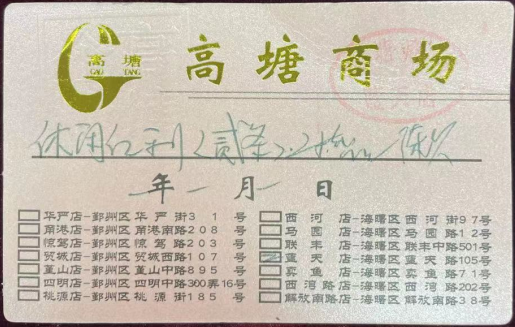 高塘
GAO TANG
高塘商场
休闲红利(贰条)
年 一 月 一 日
华严店-鄞州区 华严街31号
南港店-鄞州区 南港南路208号
惊驾店-鄞州区 惊驾路203号
贸城店-鄞州区 贸城西路107号
堇山店-鄞州区 堇山中路895号
四明店-鄞州区 四明中路300弄16号
桃源店-鄞州区 桃源街185号
西河店-海曙区 西河街97号
马园店-海曙区 马园路12号
联丰店-海曙区 联丰中路501号
蓝天店-海曙区 蓝天路105号
卖鱼店-海曙区 卖鱼路71号
西湾路店-海曙区 西湾路202号
解放南路店-海曙区 解放南路38号